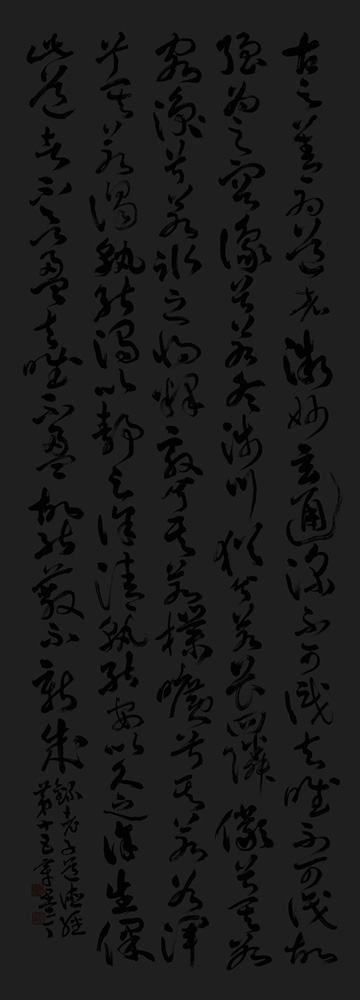 古之善為道者微妙玄通深不可識夫唯不可識故
強為之容豫兮若冬涉川猶兮若畏四隣儼兮其若
客渙兮若冰之將釋敦兮其若樸曠兮其若谷渾
兮其若濁孰能濁以靜之徐清孰能安以久之徐生保
此道者不欲盈夫唯不盈故能蔽不新成
錄老子道德經
第十五章